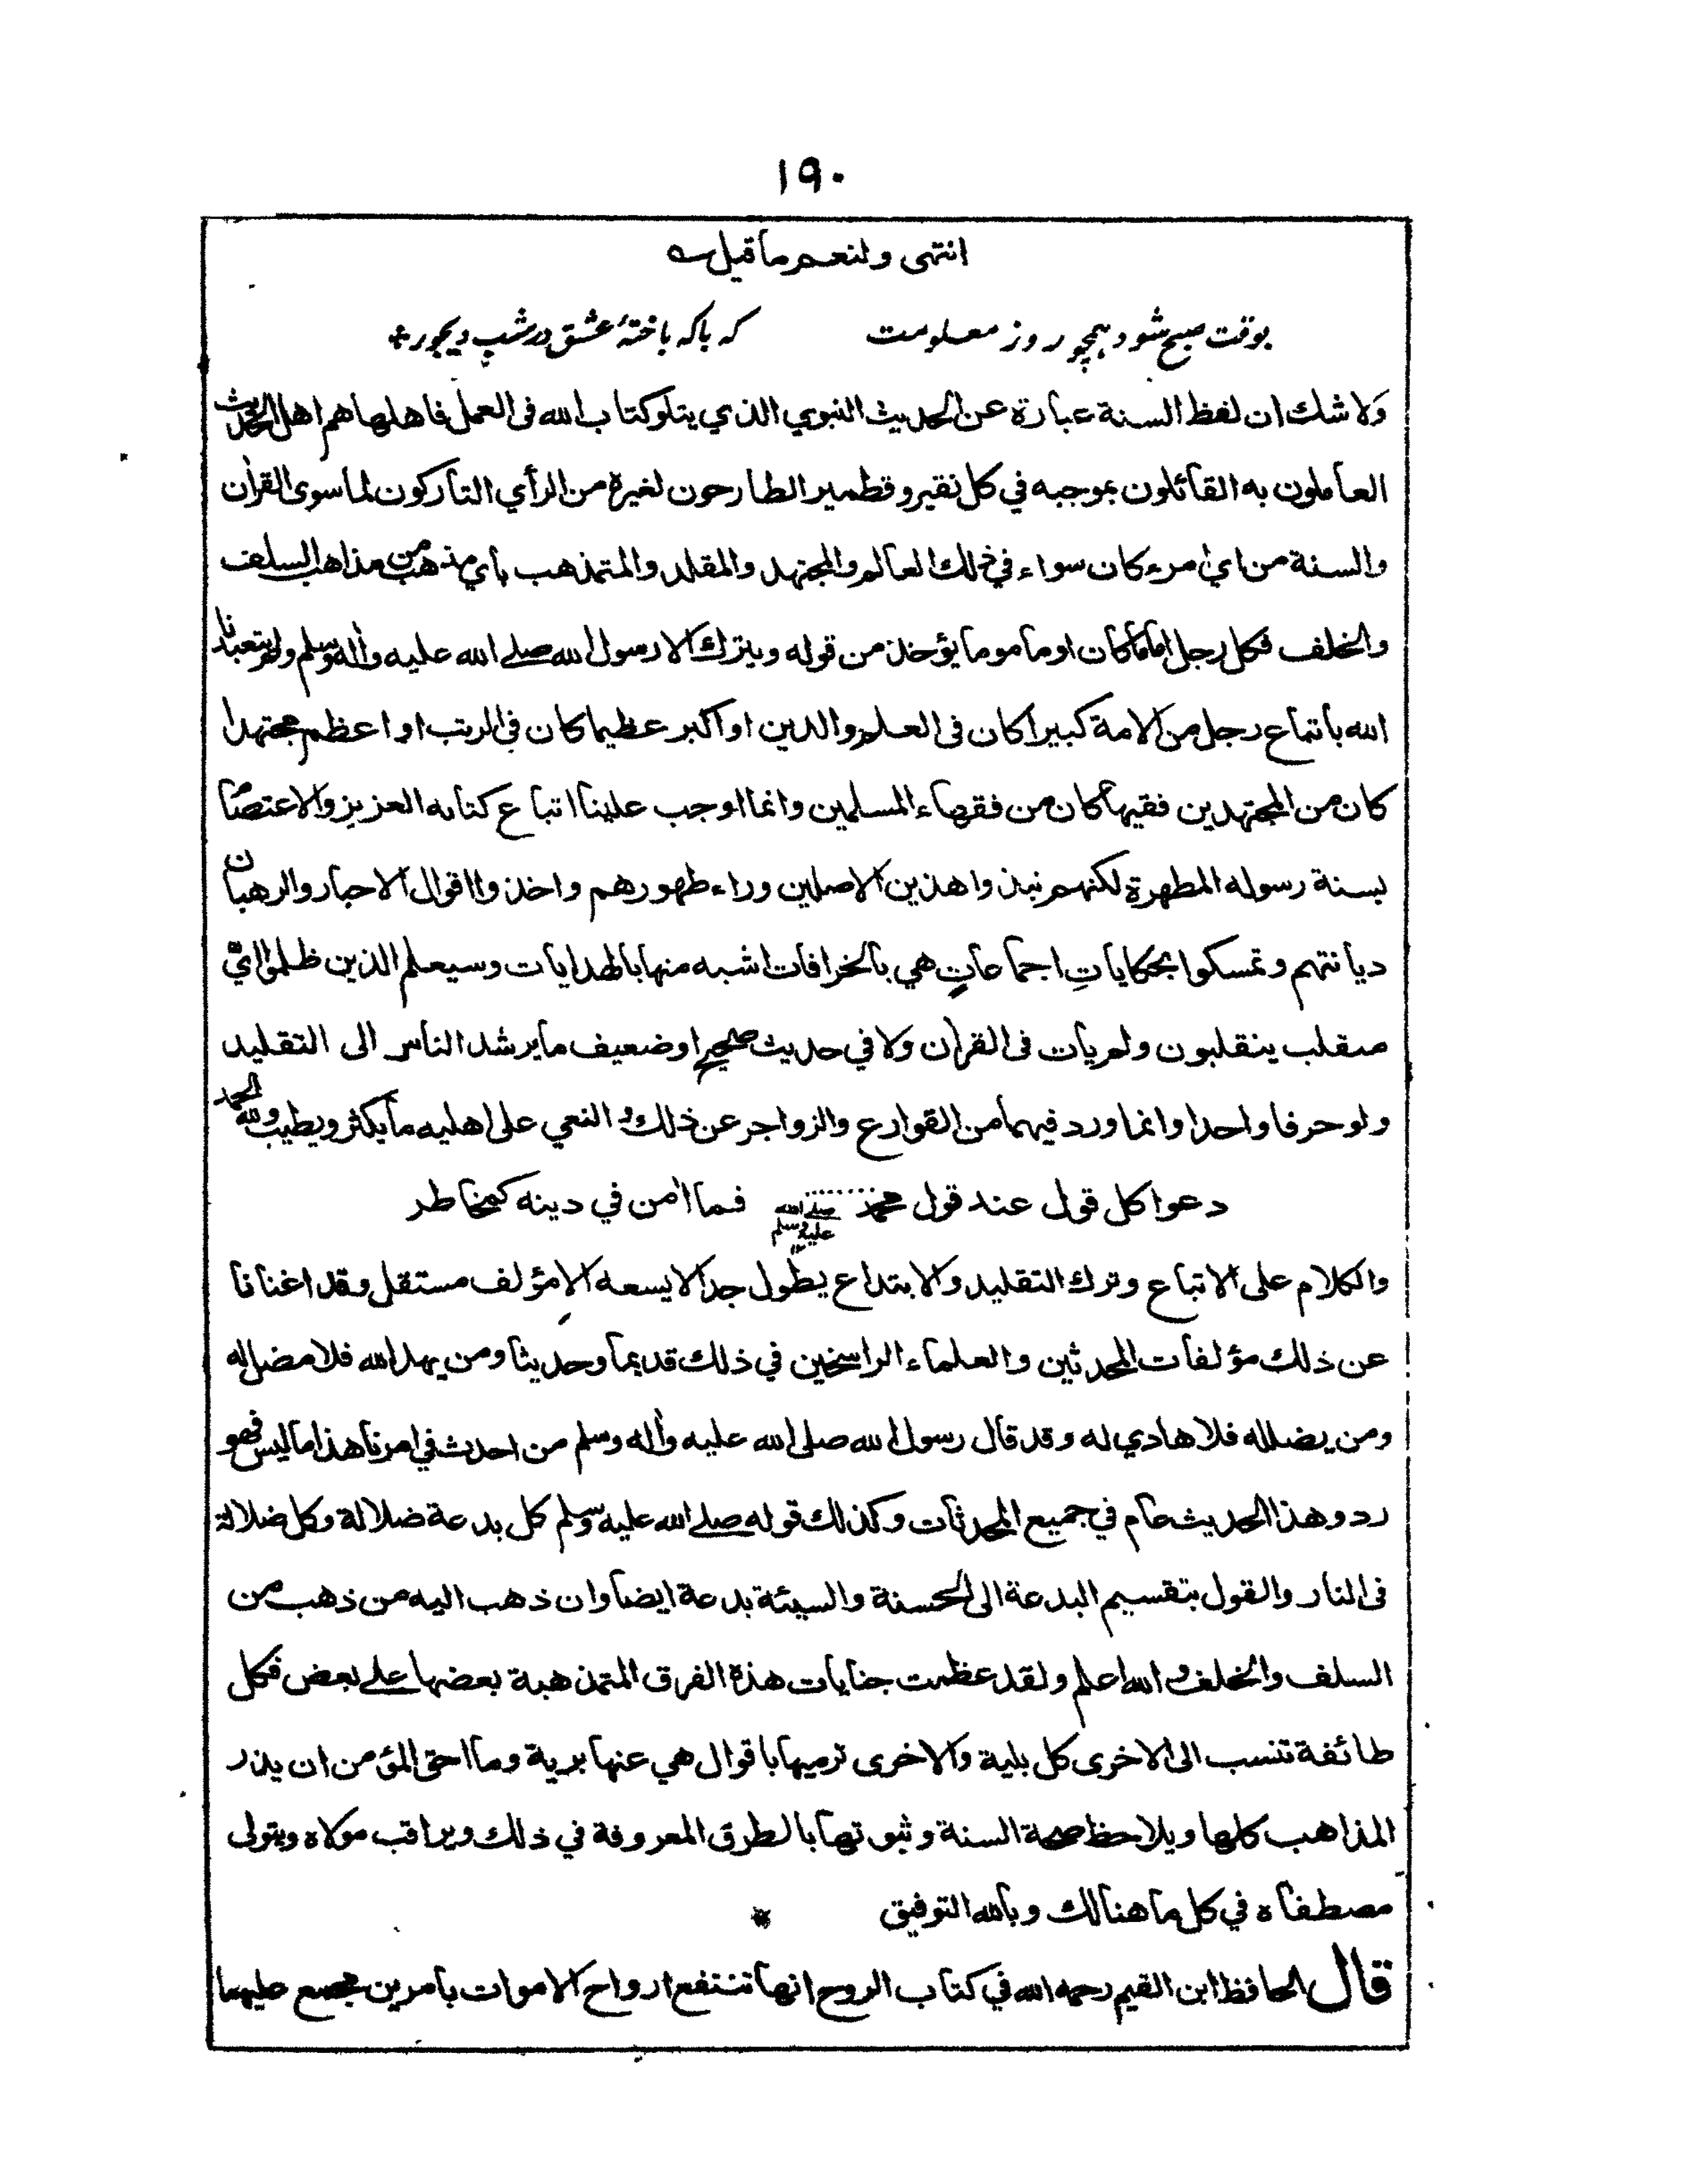 ١٩٠
انتهى ولنعم ما قيل ؎
بوقت صبح شود همچو روز معلومت که با که باختهٔ عشق در شب دیجور
ولا شك ان لفظ السنة عبارة عن الحديث النبوي الذي يتلو كتاب الله فى العمل فاهلها هم اهل الحديث
العاملون به القائلون بموجبه في كل نقير وقطمير الطارحون لغيرة من الرأي التاركون لما سوى القرأن
والسنة من اي امرء كان سواء في ذلك العالم والمجتهد والمقلد والمتمذهب باي مذهب من مذاهب السلف
والخلف فكل رجل اماما كان او ماموما يؤخذ من قوله ويترك الا رسول الله صلى الله عليه وأله وسلم ولم يتعبدنا
الله باتباع رجل من الامة كبيرا كان فى العلم والدين او اكبر عظيما كان فى الرتب او اعظم مجتهدا
كان من المجتهدين فقيها كان من فقهاء المسلمين وانما اوجب علينا اتباع كتابه العزيز والاعتصام
بسنة رسوله المطهرة لكنهم نبذوا هذين الاصلين وراء ظهورهم واخذوا اقوال الاحبار والرهبان
ديانتهم وتمسكوا بحكاياتِ اجماعاتٍ هي بالخرافات اشبه منها بالهدايات وسيعلم الذين ظلموا ايّ
منقلب ينقلبون ولم يات فى القرأن ولا في حديث صحيح او ضعيف ما يرشد الناس الى التقليد
ولو حرفا واحدا وانما ورد فيهما من القوارع والزواجر عن ذلك والنعي على اهليه ما يكثر ويطيب ولله الحمد
دعوا كل قول عند قول محمد صلى الله عليه وسلم ١٢ فما أمن في دينه كمخاطر
والكلام على الاتباع وترك التقليد والابتداع يطول جدا لا يسعه الا مؤلف مستقل وقد اغنانا
عن ذلك مؤلفات المحدثين والعلماء الراسخين في ذلك قديما وحديثا ومن يهد الله فلا مضل له
ومن يضلله فلا هادي له وقد قال رسول الله صلى الله عليه وأله وسلم من احدث في امرنا هذا ما ليس فهو
رد وهذا الحديث عام في جميع المحدثات وكذلك قوله صلى الله عليه وسلم كل بدعة ضلالة وكل ضلالة
فى النار والقول بتقسيم البدعة الى الحسنة والسيئة بدعة ايضا وان ذهب اليه من ذهب من
السلف والخلف والله اعلم ولقد عظمت جنايات هذة الفرق المتمذهبة بعضها على بعض فكل
طائفة تنسب الى الاخرى كل بلية والاخرى ترميها باقوال هي عنها برية وما احق المؤمن ان يذر
المذاهب كلها ويلاحظ صحة السنة وثبوتها بالطرق المعروفة في ذلك ويراقب مولاه ويتولى
مصطفاه في كل ما هنالك وبالله التوفيق *
قال الحافظ ابن القيم رحمه الله في كتاب الروح انها تنتفع ارواح الاموات بامرين مجمع عليهما